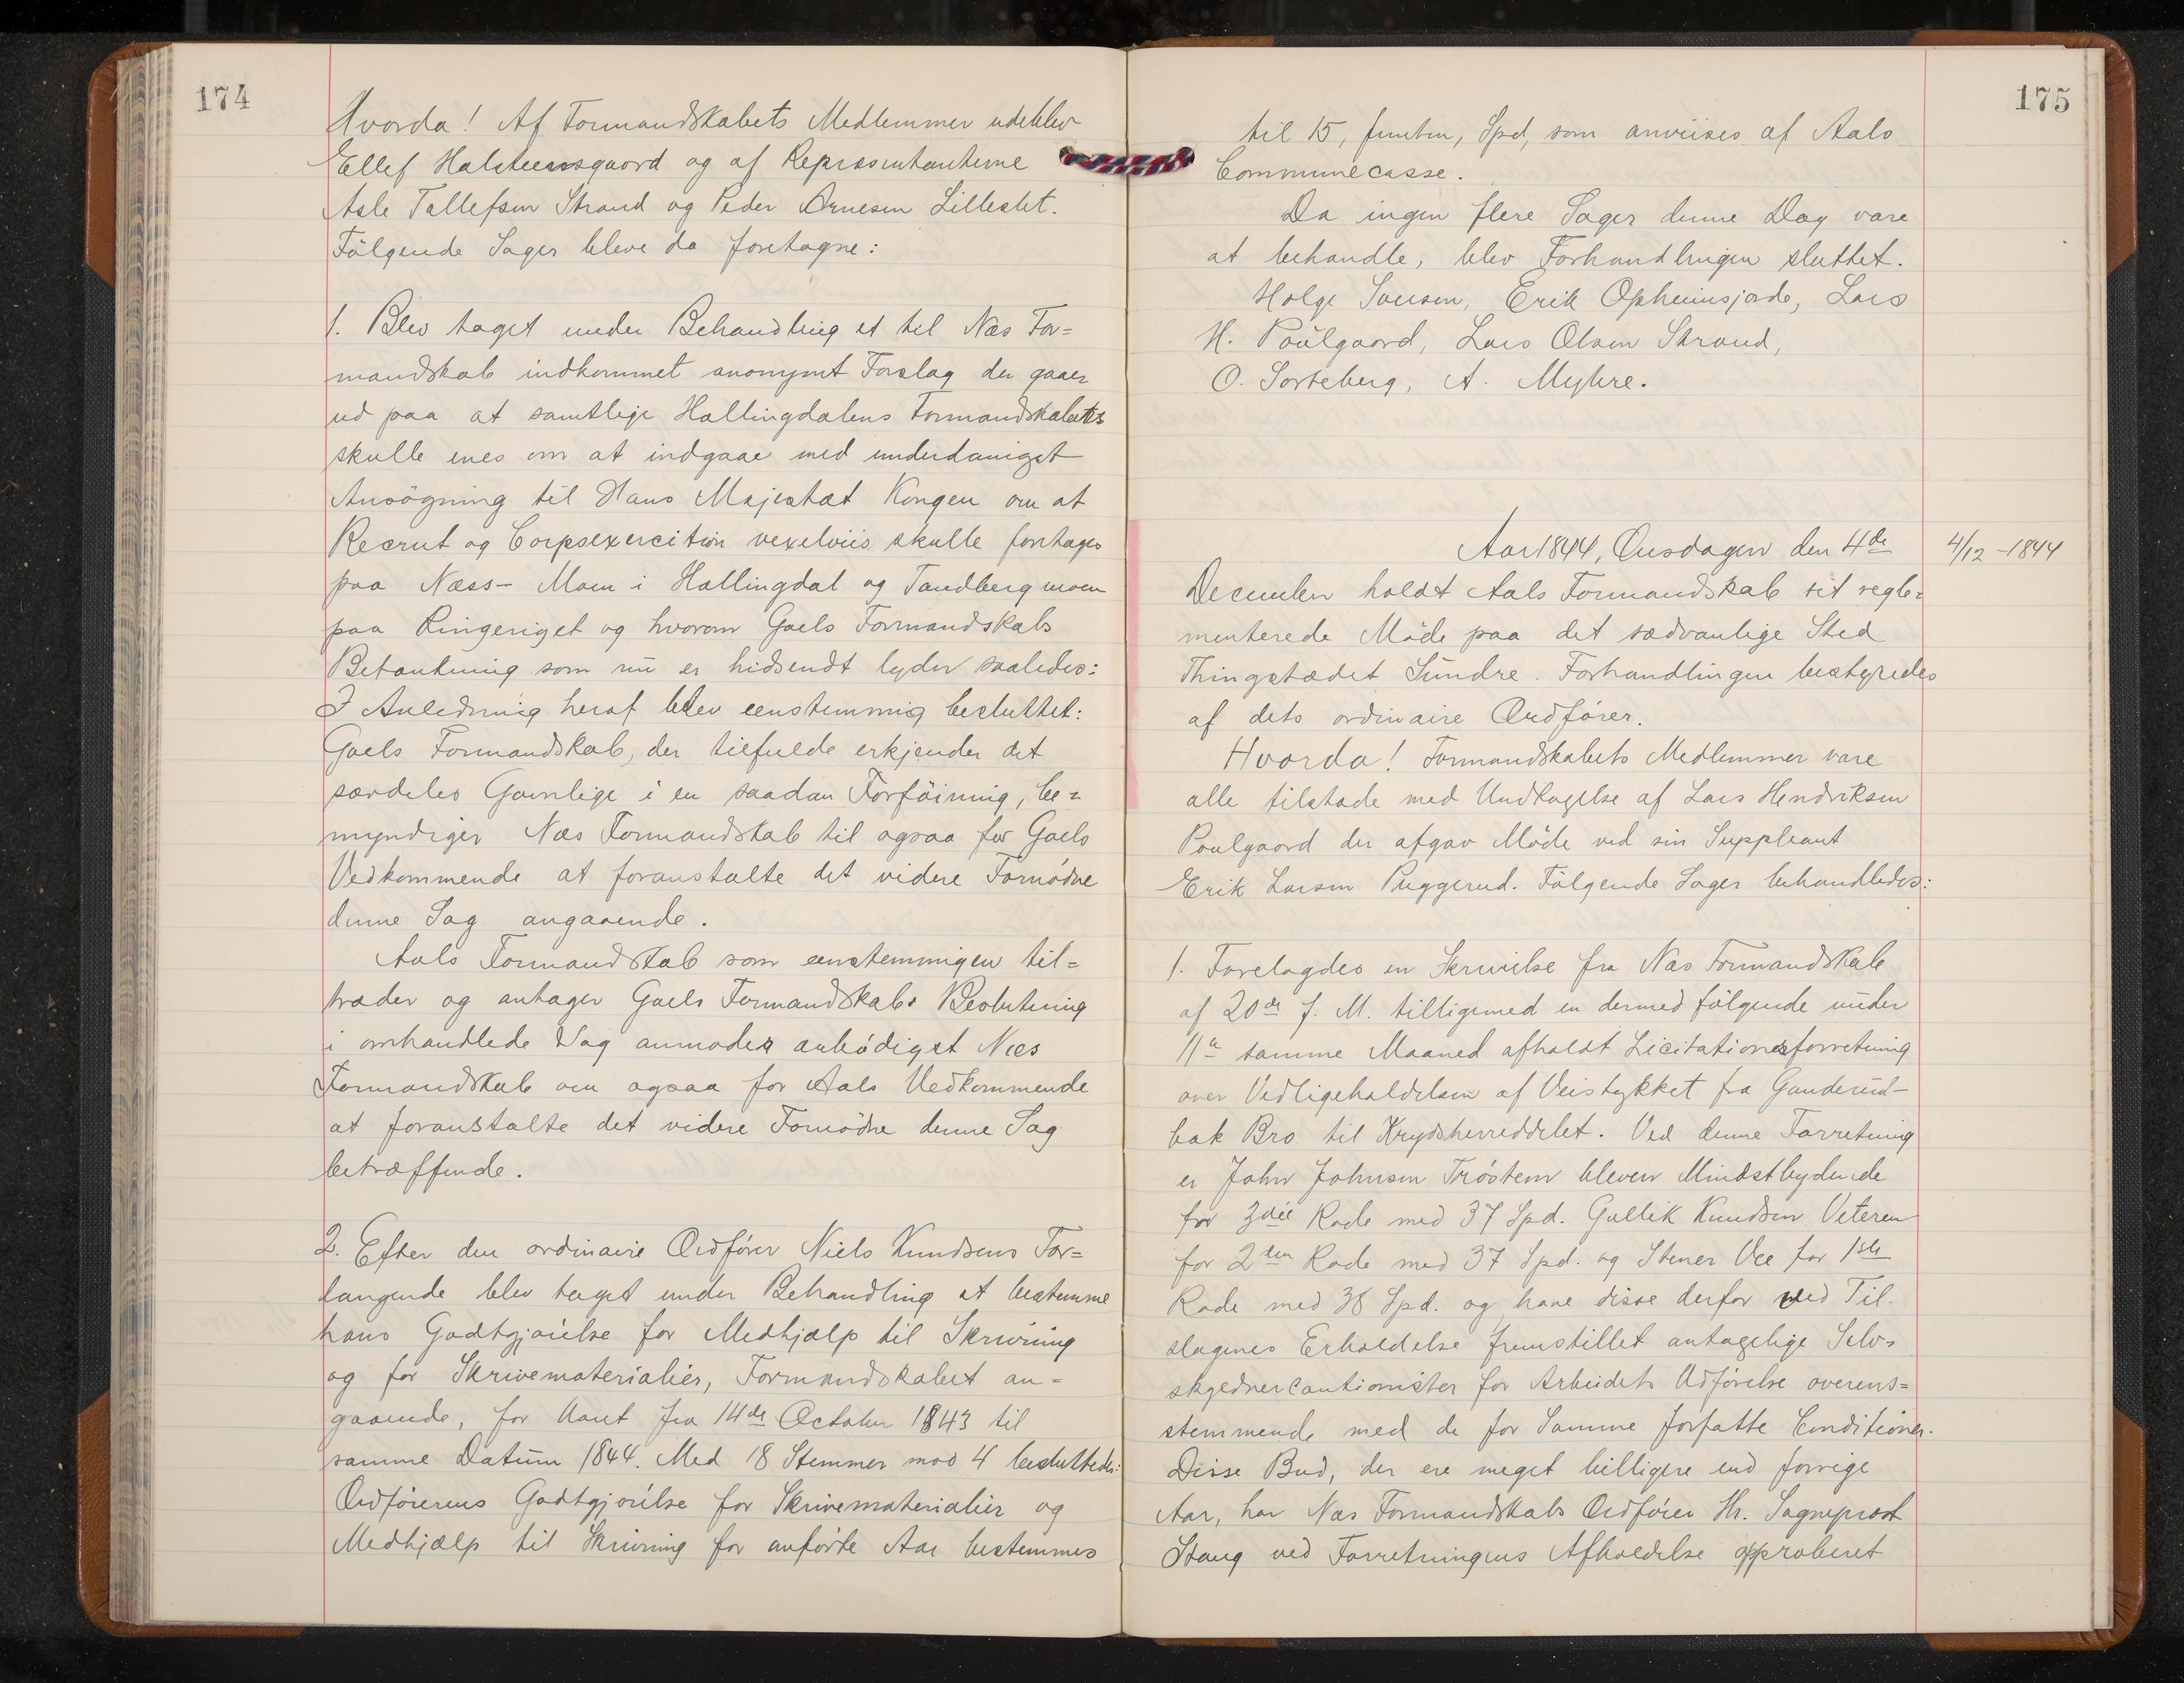 174
Hvorda! Af Formandskabets Medlemmer udeblev
Ellef Halsteensgaard og af Repræsentanterne
Asle Tollefsen Strand og Peder Arnesen Lilleslet.
Følgende Sager bleve da foretagne:
1. Blev taget under Behandling et til Næs For=
mandskab indkommet anonymt Forslag der gaaer
ud paa at samtlige Hallingdalens Formandskabets
skulle enes om at indgaae med underdanigst
Ansøgning til Hans Majestæt Kongen om at
Recrut og Corpsexercition vexelviis skulle foretages
paa Næss- Moen i Hallingdal og Tandberg moen
paa Ringeriget og hvorom Goels Formandskabs
Betænkning som nu er hidsendt lyder saaledes:
I Anledning heraf blev eenstemmig besluttet:
Goels Formandskab, der tilfulde erkjender det
særdeles Gavnlige i en saadan Forføining, be=
myndiger Næs Formandskab til ogsaa for Goels
Vedkommende at foranstalte det videre Fornødne
denne Sag angaaende.
Aals Formandskab som eenstemmigen til=
træder og antager Goels Formandskabs Beslutning
i omhandlede Sag anmoder ærbødigst Næs
Formandskab om ogsaa for Aals Vedkommende
at foranstalte det videre Fornødne denne Sag
betræffende.
2. Efter den ordinaire Ordfører Niels Knudsens For=
langende blev taget under Behandling at bestemme
hans Godtgjørelse for Medhjælp til Skrivning
og for Skrivematerialier, Formandskabet an=
gaaende, for Aaret fra 14de October 1843 til
samme Datum 1844. Med 18 Stemmer mod 4 besluttedes:
Ordførerens Godtgjørelse for Skrivematerialier og
Medhjælp til Skrivning for anførte Aar bestemmes
175
til 15, femten, Spd, som anviises af Aals
Communecasse.
Da ingen flere Sager denne Dag vare
at behandle, blev Forhandlingen sluttet.
Holge Sversen, Erik Opheimsjorde, Lars
H. Poülgaard, Lars Olsen Strand,
O. Sorteberg, A. Myhre.
Aar 1844, Onsdagen den 4de
4/12 -1844
December holdt Aals Formandskab sit regle=
menterede Møde paa det sædvanlige Sted
Thingstædet Sundre. Forhandlingen bestyredes
af dets ordinaire Ordfører.
Hvorda! Formandskabets Medlemmer vare
alle tilstæde med Undtagelse af Lars Hendriksen
Poulgaard der afgav Møde ved sin Suppleant
Erik Larsen Puggerud. Følgende Sager behandledes:
1. Forelagdes en Skrivelse fra Næs Formandskab
af 20de f. M. tilligemed en dermed følgende under
11te samme Maaned afholdt Licitationsforretning
over Vedligeholdelsen af Veistykket fra Ganderud-
bak Bro til Krydsherreddelet. Ved denne Forretning
er John Johnsen Trøstem bleven Mindstbydende
for 3die Rode med 37 Spd. Gullik Knudsen Veteren
for 2den Rode med 37 Spd. og Stener Vee for 1ste
Rode med 38 Spd. og have disse derfor ved Til-
slagenes Erholdelse fremstillet antagelige Selv=
skyldnercautionister for Arbeidets Udførelse overens=
stemmende med de for Samme forfatte Conditioner.
Disse Bud, der ere meget billigere end forrige
Aar, har Næs Formandskabs Ordfører Hr. Sogneprest
Stang ved Forretningens Afholdelse approberet